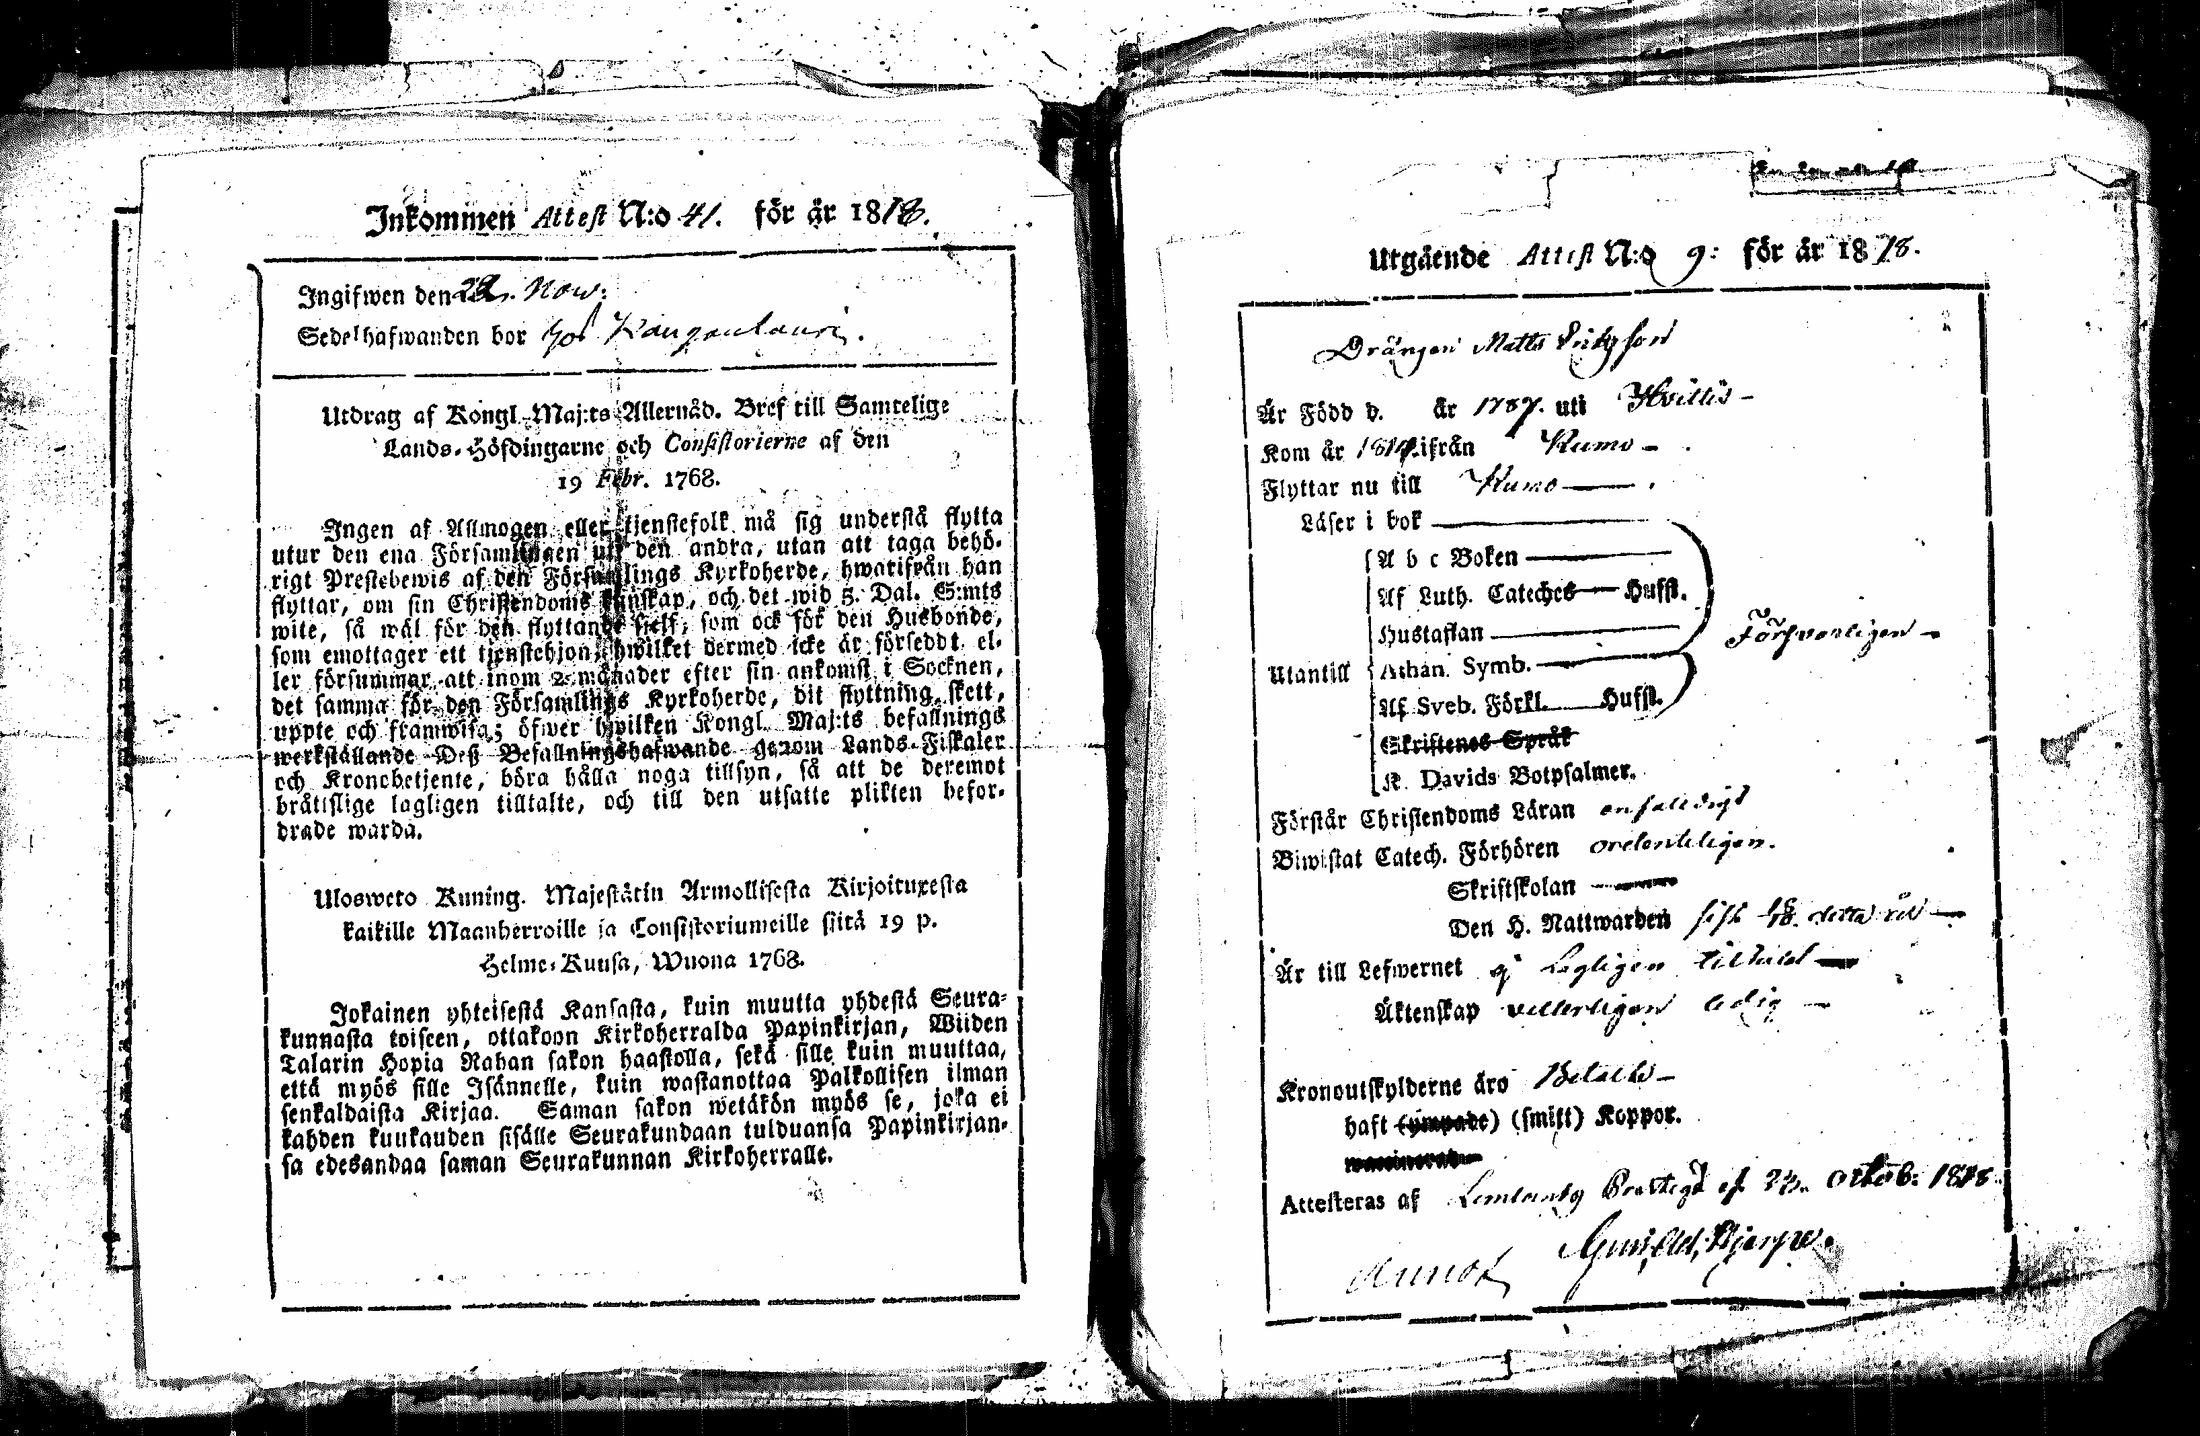 Inkommen Attest N:o 41. för år 1818.
Ingifwen den 22. Now:
Sedelhafwanden bor hos
Utdrag af Kongl. Maj:ts Allernåd. Bref till Samtelige
Lands-Höfdingarne och Consistorierne af den
19 Febr. 1768.
Ingen af Allmogen eller tjenstefolk må sig understå flytta
utur den ena Församlingen uti den andra, utan att taga behö-
rigt Prestebewis af den Församlings Kyrkoherde, hwarifrån han
flyttar, om sin Christendoms kunskap, och det wid 5. Dal. S:mts
wite, så wäl för den flyttande sielf, som ock för den Husbonde,
som emottager ett tjenstehjon, hwilket dermed icke är försedt, el-
ler försummar att inom 2 månader efter sin ankomst i Socknen,
det samma för den Församlings Kyrkoherde, dit flyttning skett,
uppte och framwisa; öfwer hwilken Kongl. Maj:ts befallnings
werkställande Deß Befallningshafwande genom Lands-Fiskaler
och Kronobetjente, böra hålla noga tillsyn, så att de deremot
bråtislige lagligen tilltalte, och till den utsatte plikten befor-
drade warda.
Ulosweto Kuning. Majestätin Armollisesta Kirjoituxesta
kaikille Maanherroille ja Consistoriumeille siitä 19 p.
Helme-Kuusa, Wuona 1768.
Jokainen yhteisestä Kansasta, kuin muutta yhdestä Seura-
kunnasta toiseen, ottakoon Kirkoherralda Papinkirjan, Wiiden
Talarin Hopia Rahan sakon haastolla, sekä sille kuin muuttaa,
että myös sille Isännelle, kuin wastanottaa Palkollisen ilman
senkaldaista Kirjaa. Saman sakon wetäkön myös se, joka ei
kahden kuukauden sisälle Seurakundaan tulduansa Papinkirjan-
sa edesandaa saman Seurakunnan Kirkoherralle.
Utgående Attest N:o 9: för år 1818.
Drängen Matts Eriksson
Är Född d. år 1787. uti Hvittis –
Kom år 1814 ifrån Kumo –
Flyttar nu till Kumo – .
Läser i bok
A b c Boken
Af Luth. Cateches Hufst.
Hustaflan
Försvarligen –
Utantill Athan. Symb.
Af Sveb. Förkl. Hufst.
Skriftenes Språk
K. Davids Botpsalmer.
Förstår Christendoms Läran enfaldigt
Biwistat Catech. Förhören ordenteligen.
Skriftskolan
Den H. Nattwarden sist detta år –
Är till Lefwernet ej Lagligen tilltald –
Äktenskap vetterligen ledig –
Kronoutskylderne äro Betalte –
haft (ympade) (smitt) Koppor.
Attesteras af Prästegd 1818